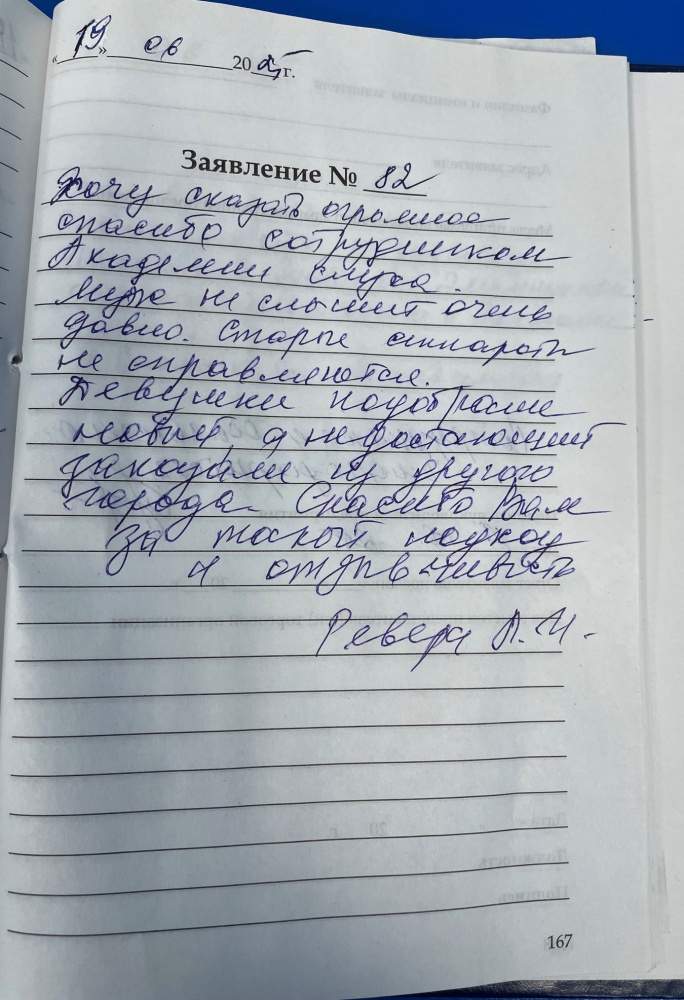 «19» 06 2025 г.
Заявление № 82
Хочу сказать огромное
спасибо сотрудником
Академии слуха.
Муж не слышит очень
давно. Старые аппараты
не справляются.
Девушки подобрали
новый, а недостающий
заказали из другого
города. Спасибо Вам
за такой подход
и отзывчивость
Ревера Л.И.
167